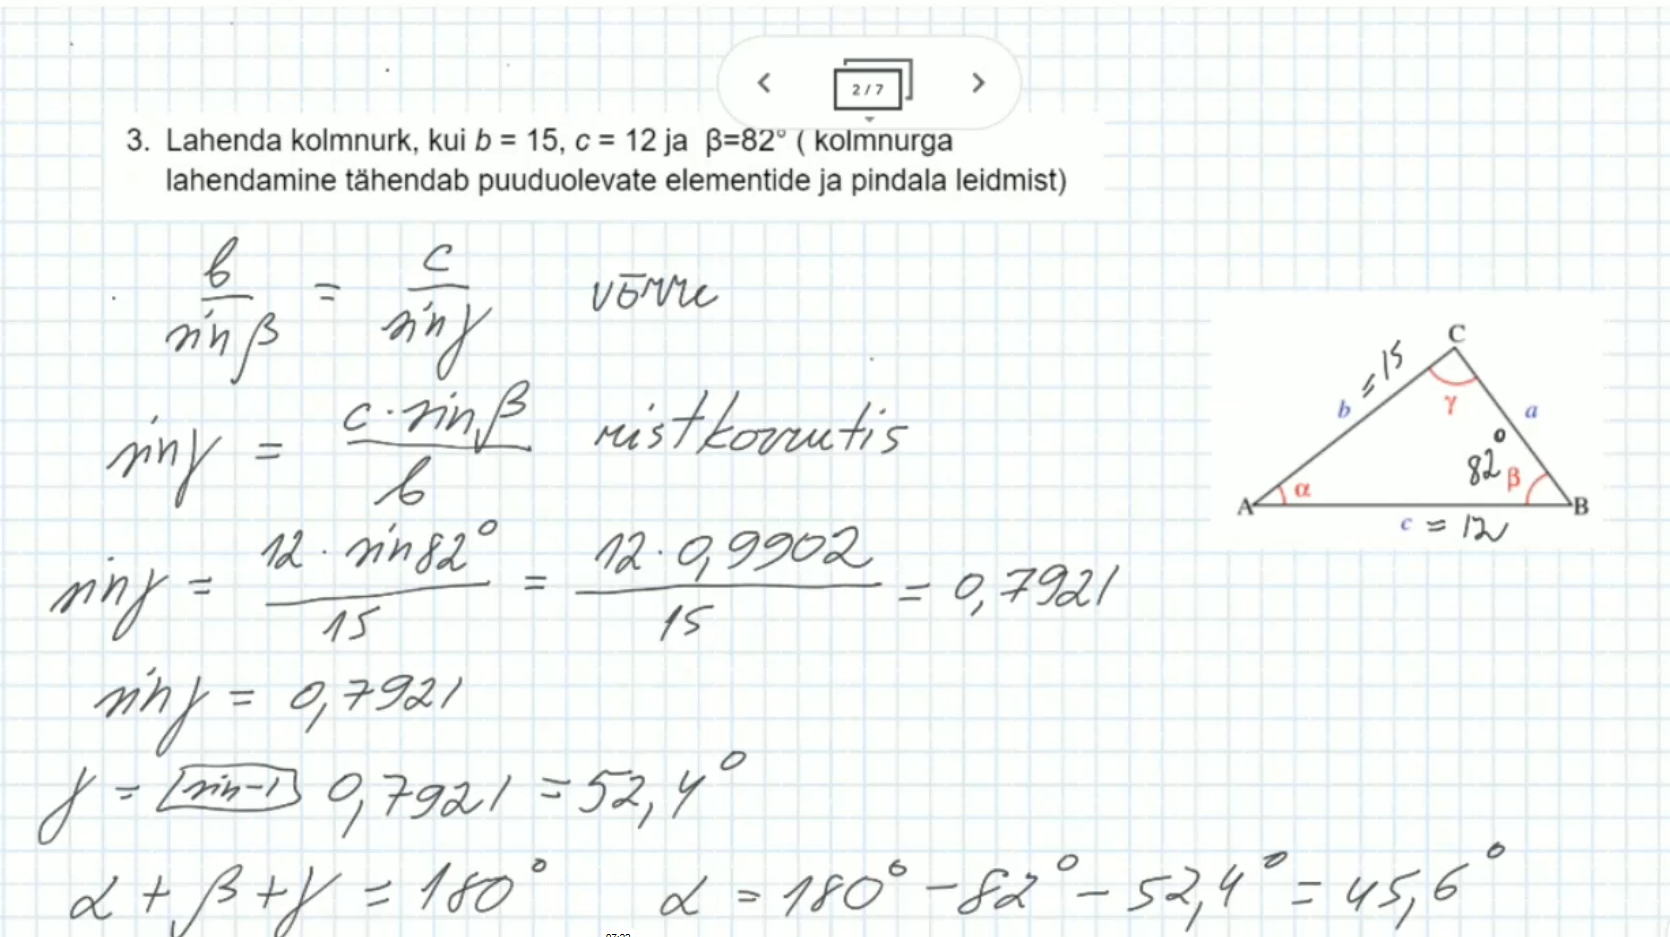 2 / 7
3. Lahenda kolmnurk, kui b = 15, c = 12 ja β=82° ( kolmnurga
lahendamine tähendab puuduolevate elementide ja pindala leidmist)
b/sin β = c/sin γ võrre
sin γ = c · sin β/b ristkorrutis
sin γ = 12 · sin 82°/15 = 12 · 0,9902/15 = 0,7921
sin γ = 0,7921
γ = sin-1 0,7921 = 52,4°
α + β + γ = 180° α = 180° - 82° - 52,4° = 45,6°
C
= 15
b
γ
a
82° β
A
α
B
c = 12